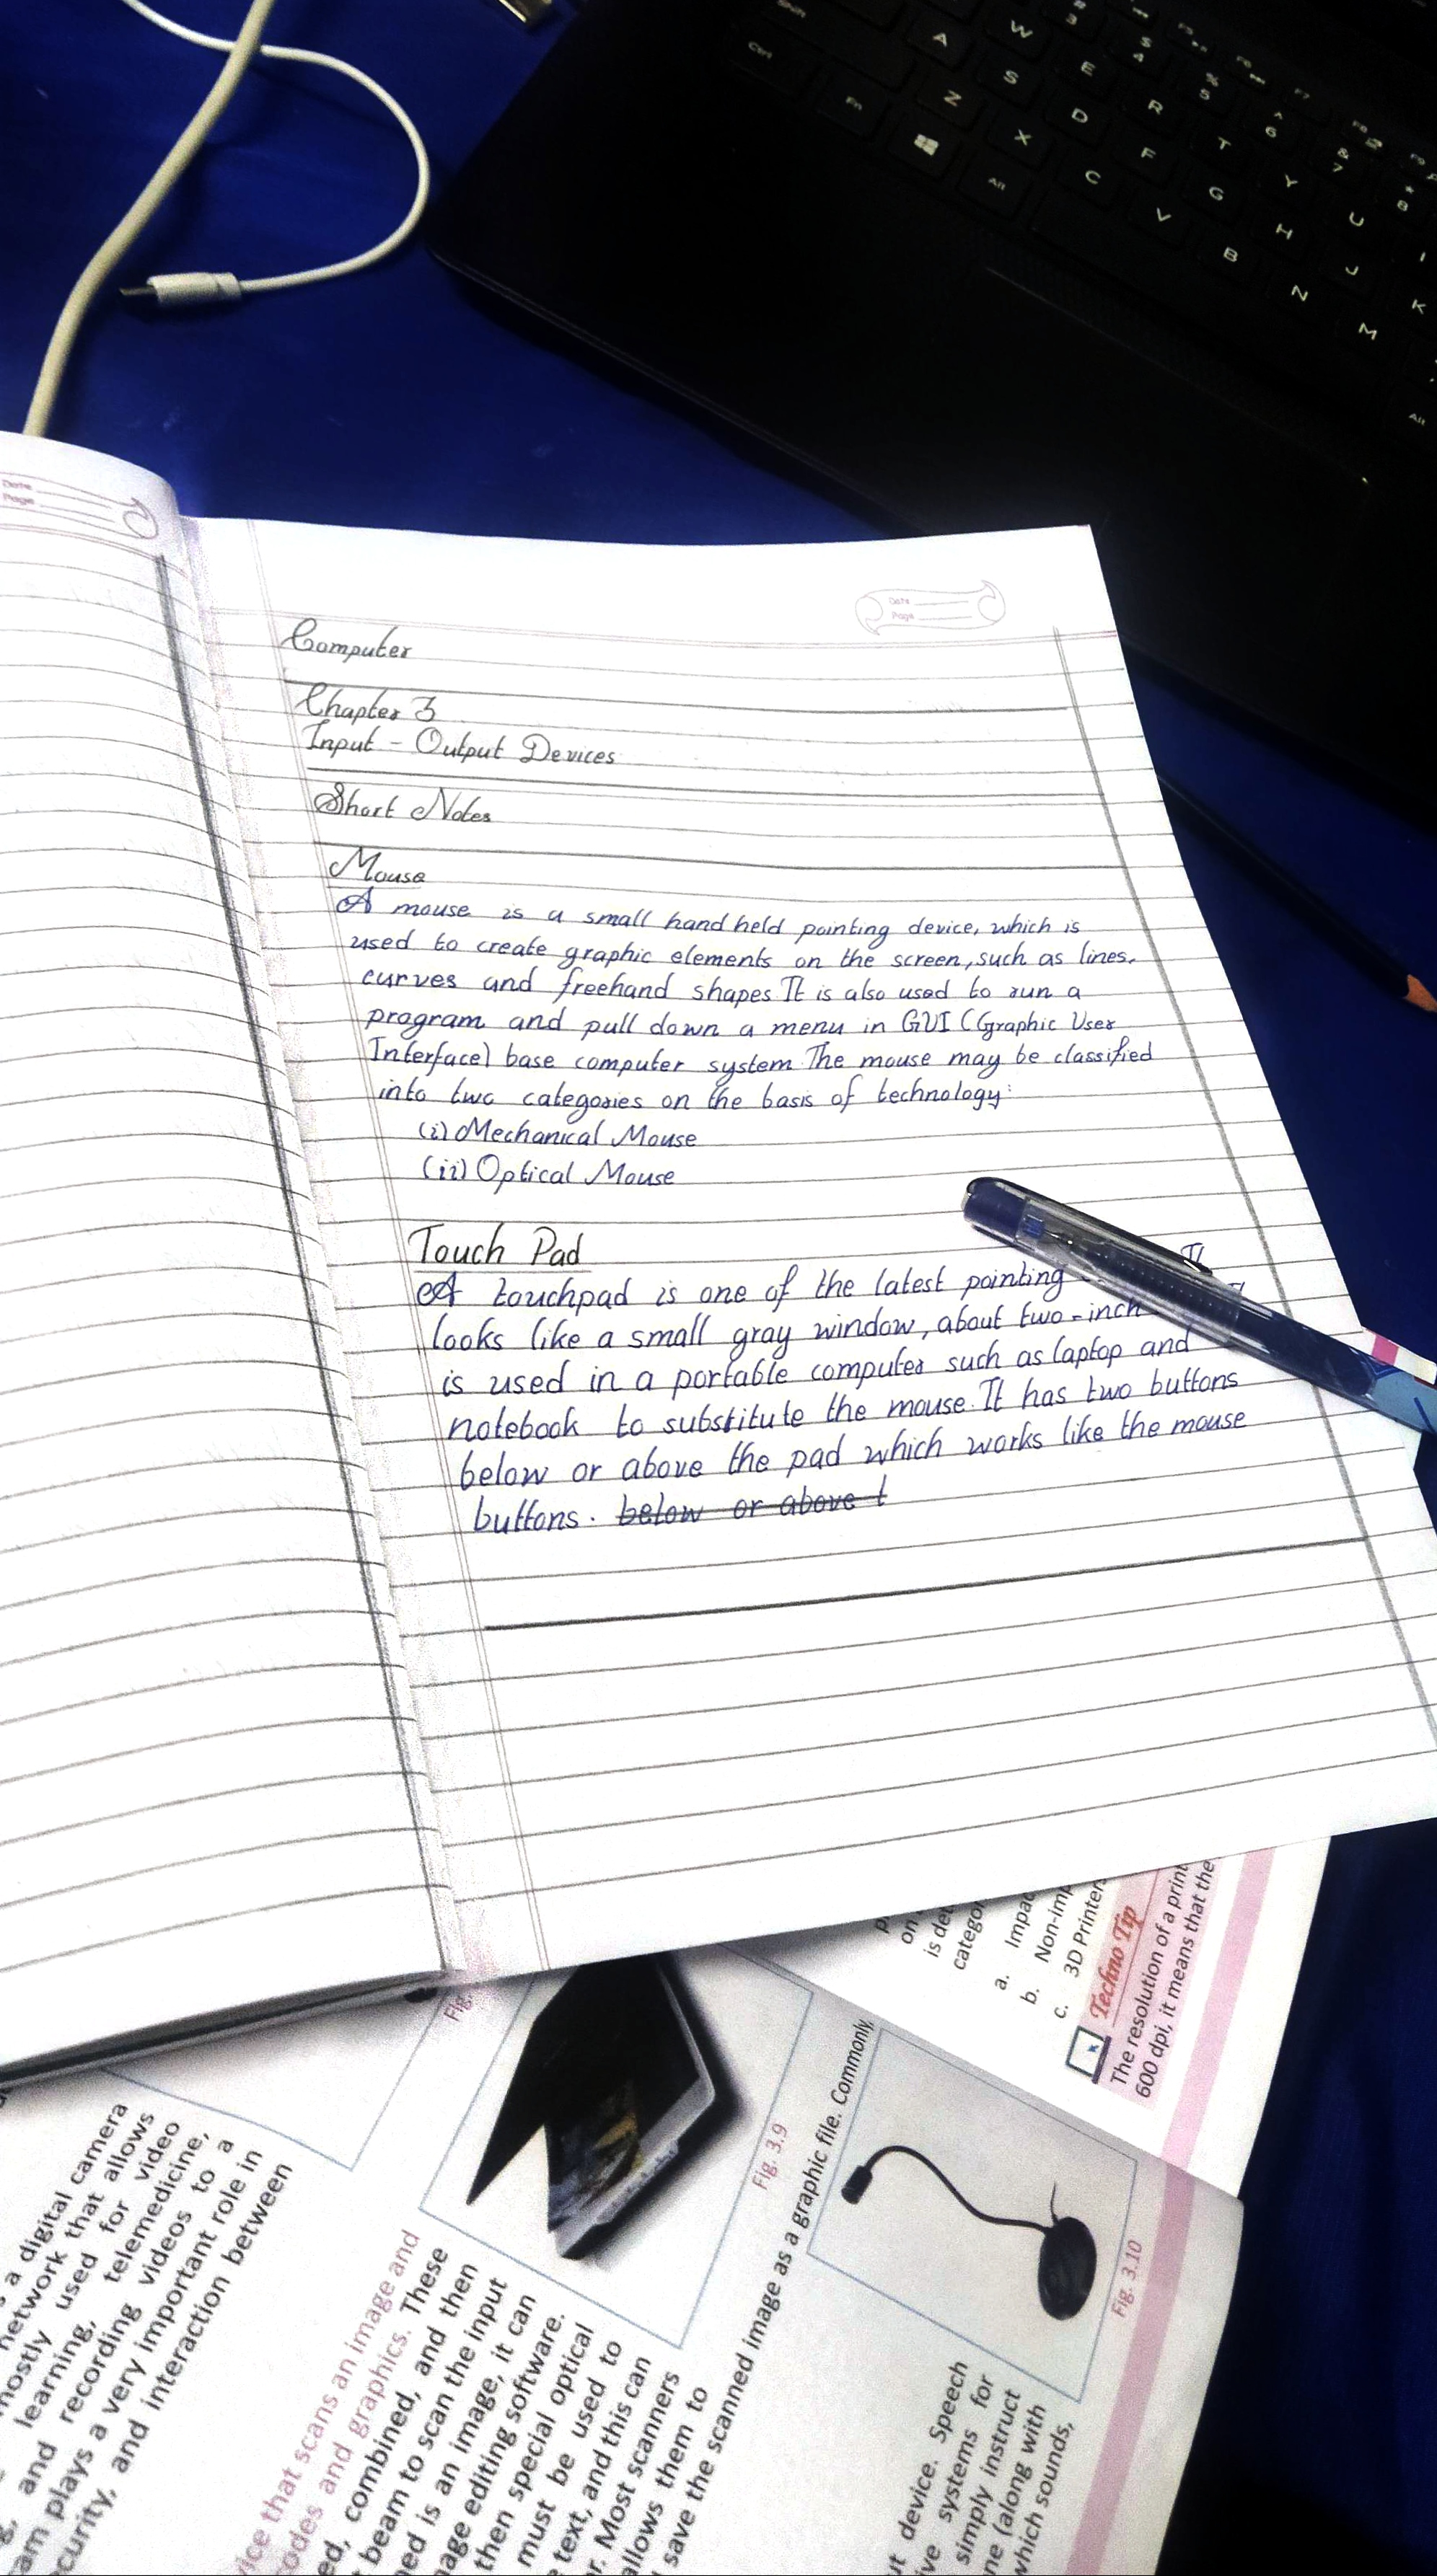 Computer
Chapter 3
Input - Output Devices
Short Notes
Mouse
A mouse is a small hand held pointing device, which is
used to create graphic elements on the screen, such as lines,
curves and freehand shapes. It is also used to run a
program and pull down a menu in GUI (Graphic User
Interface) base computer system. The mouse may be classified
into two categories on the basis of technology:
(i) Mechanical Mouse
(ii) Optical Mouse
Touch Pad
A touchpad is one of the latest pointing It
looks like a small gray window, about two-inch
is used in a portable computer such as laptop and
notebook to substitute the mouse. It has two buttons
below or above the pad which works like the mouse
buttons. below or above t
Date
Page
Date
Page
a digital camera
network that allows
mostly used for video
learning, telemedicine,
and recording videos to a
plays a very important role in
and interaction between
that scans an image and
codes and graphics. These
combined, and then
beam to scan the input
is an image, it can
image editing software.
then special optical
must be used to
text, and this can
Most scanners
allows them to
save the scanned image as a graphic file. Commonly,
Fig.
Fig. 3.9
Fig. 3.10
device. Speech
systems for
simply instruct
(along with
which sounds,
on
is
a.
b.
c. 3D Printer
Techno Tip
The resolution of a print
600 dpi, it means that the
Shift
Ctrl
Fn
Alt
A
W
E
R
T
Y
U
I
S
D
F
G
H
J
K
Z
X
C
V
B
N
M
Alt